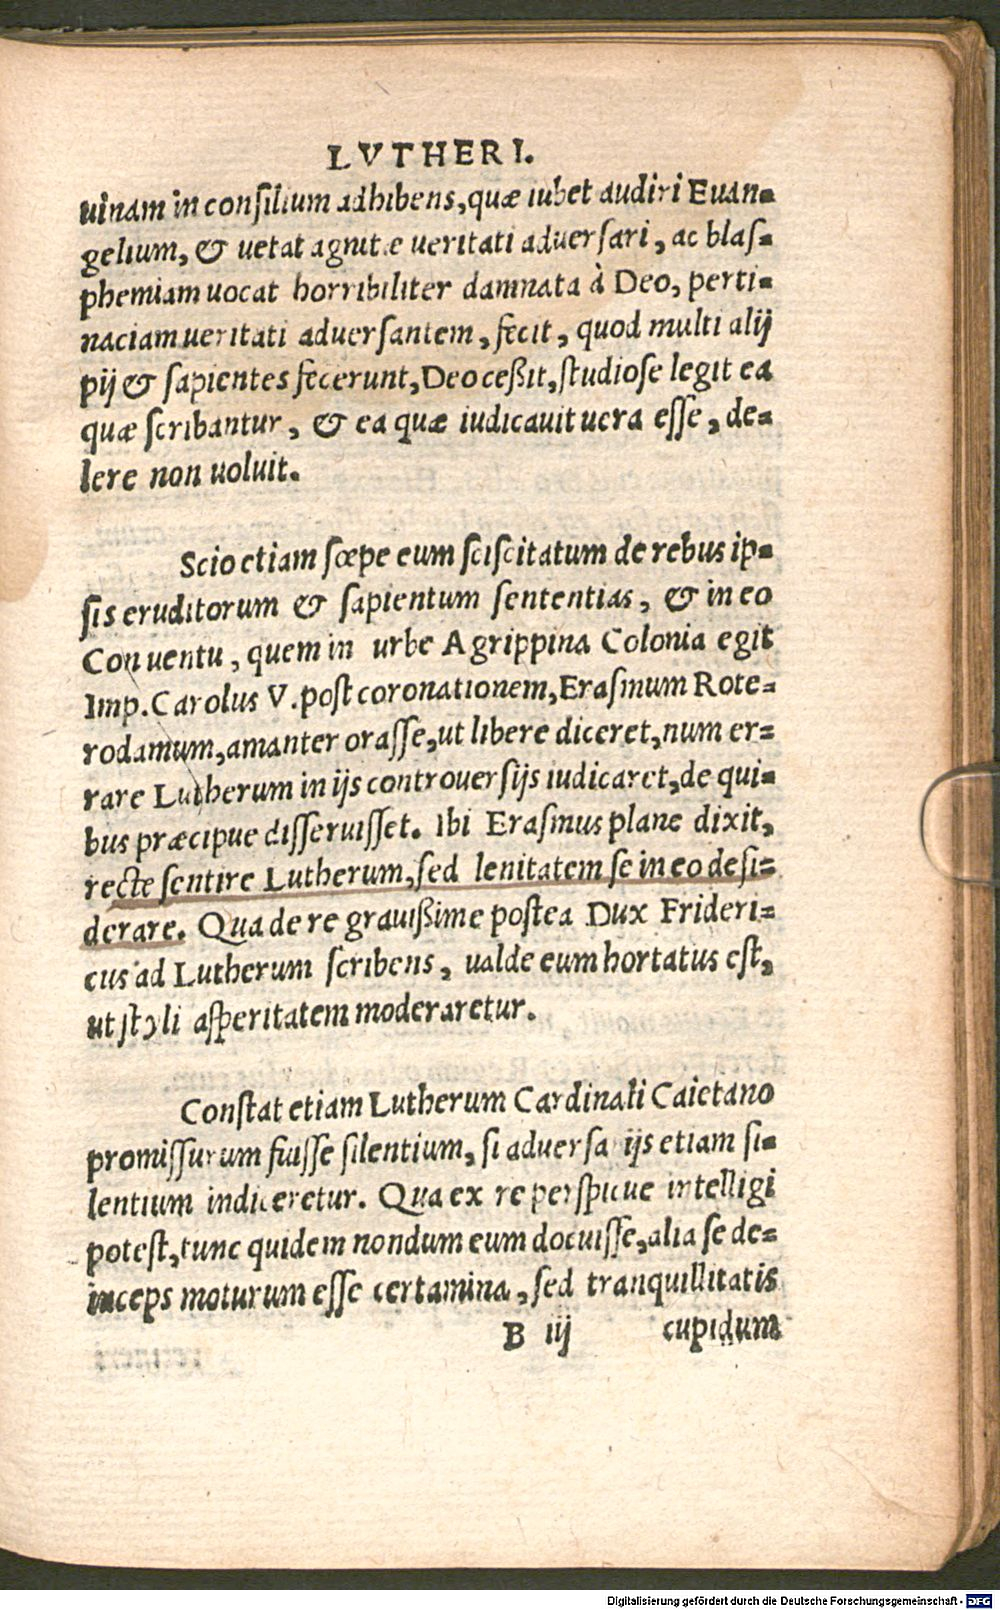 LVTHERI.
uinam in consilium adhibens, quæ iubet audiri Euan=
gelium, & uetat agnitæ ueritati aduersari, ac blas=
phemiam uocat horribiliter damnata à Deo, perti=
naciam ueritati aduersantem, fecit, quod multi alij
pij & sapientes fecerunt, Deo ceßit, studiose legit ea
quæ scribantur, & ea quæ iudicauit uera esse, de=
lere non uoluit.
Scio etiam sœpe eum sciscitatum de rebus ip=
sis eruditorum & sapientum sententias, & in eo
Conuentu, quem in urbe Agrippina Colonia egit
Imp. Carolus V. post coronationem, Erasmum Rote=
rodamum, amanter orasse, ut libere diceret, num er=
rare Lutherum in ijs controuersijs iudicaret, de qui=
bus præcipue disseruisset. Ibi Erasmus plane dixit,
recte sentire Lutherum, sed lenitatem se in eo desi=
derare. Qua de re grauißime postea Dux Frideri=
cus ad Lutherum scribens, ualde eum hortatus est,
ut styli asperitatem moderaretur.
Constat etiam Lutherum Cardinali Caietano
promissurum fuisse silentium, si aduersarijs etiam si=
lentium indiceretur. Qua ex re perspicue intelligi
potest, tunc quidem nondum eum docuisse, alia se de=
inceps moturum esse certamina, sed tranquillitatis
B iij cupidum
Digitalisierung gefördert durch die Deutsche Forschungsgemeinschaft - DFG